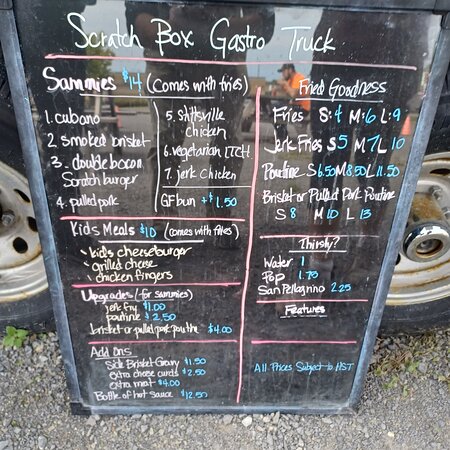 Scratch Box Gastro Truck
Sammies $14 (Comes with fries)
1. cubano
2 smoked brisket
3. double bacon
Scratch burger
4. pulled pork
5. Stittsville
chicken
6. vegetarian LTCH
7. jerk Chicken
GF bun + $1.50
Kid's Meals $10 (comes with fries)
kid's cheeseburger
grilled cheese
chicken fingers
Upgrades (for sammies)
jerk fry $1.00
poutine $2.50
brisket or pulled pork poutine $4.00
Add Ons
Side Brisket Gravy $1.50
extra cheese curds $2.50
extra meat $4.00
Bottle of hot sauce $12.50
Fried Goodness
Fries S:4 M:6 L:9
Jerk Fries S 5 M 7 L 10
Poutine S 6.50 M 8.50 L 11.50
Brisket or Pulled Pork Poutine
S 8 M 10 L 13
Thirsty?
Water 1
Pop 1.75
San Pellegrino 2.25
Features
All Prices Subject to HST